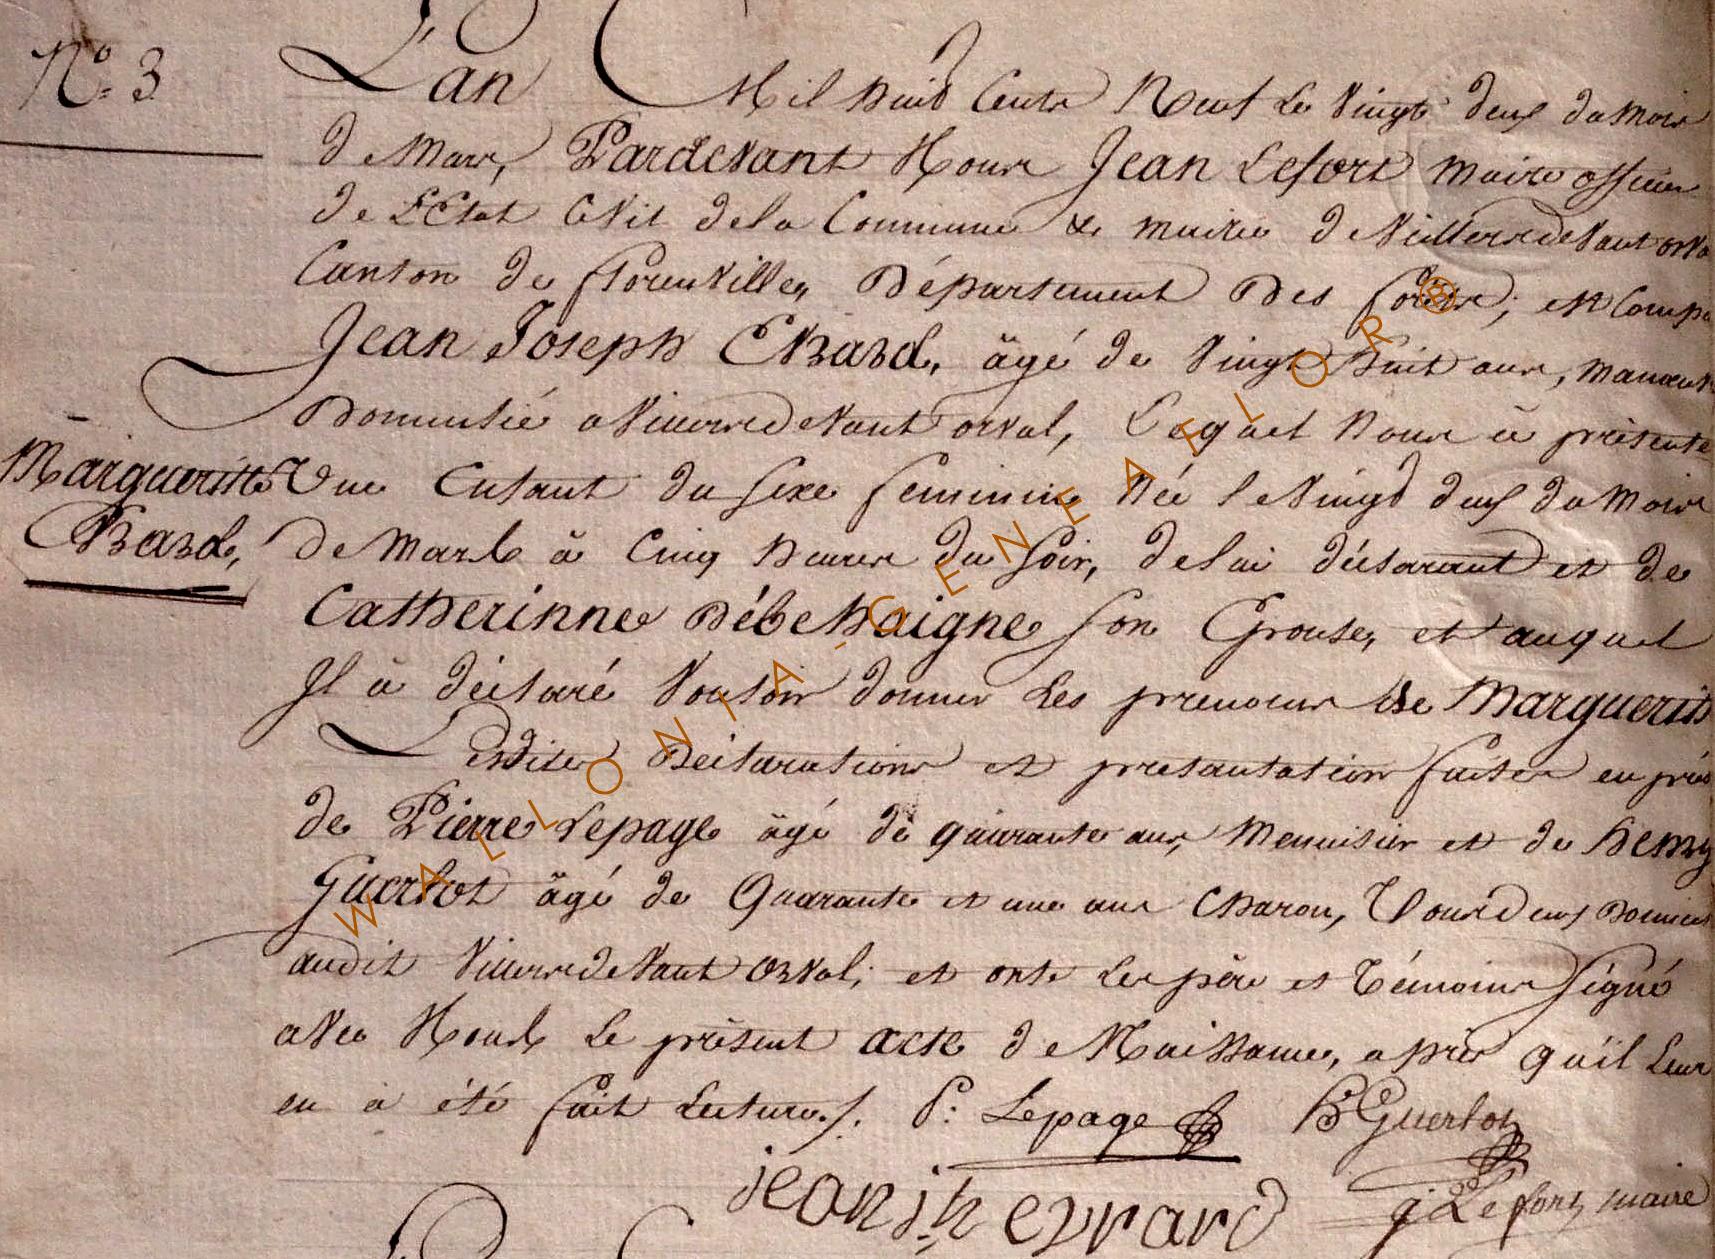 N.° 3
L'an Mil huit Cents Neuf le Vingt deux du Mois
de Mars, Pardevant Nous Jean Lefort maire officier
de L'Etat Civil de la Commune & mairie de Villersdevant orva
Canton de florenville, Département Des forêts; est Compa
Jean Joseph EVrard, âgé de Vingt huit ans, manœuv
Domicilié a Villersdevant orval, Lequel nous à présenté
Marguerite
EVrard,
Une Enfant du sexe feminin Née le Vingt deux du Mois
De Mars à Cinq heures du Soir, de lui déclarant et de
Catherinne Débehaigne son Epouse, et auquel
Il à déclaré Vouloir donner Les prenoms de Marguerite
Lesdites Déclarations et presantation faites en prés
de Pierre Lepage âgé de quarante ans, Menuisier et de henry
Guerlot âgé de Quarante et une ans Charon, Tous deux Domicil
audit Villersdevant orval; et onts Les père et Témoins Signé
aVec Nous Le présent acte de Naissance, après qu'il Leur
en a été fait Lecture./. P: Lepage HGuerlot
jean jph evrard j. Lefort, maire
WALLONIA-GENEALOR®